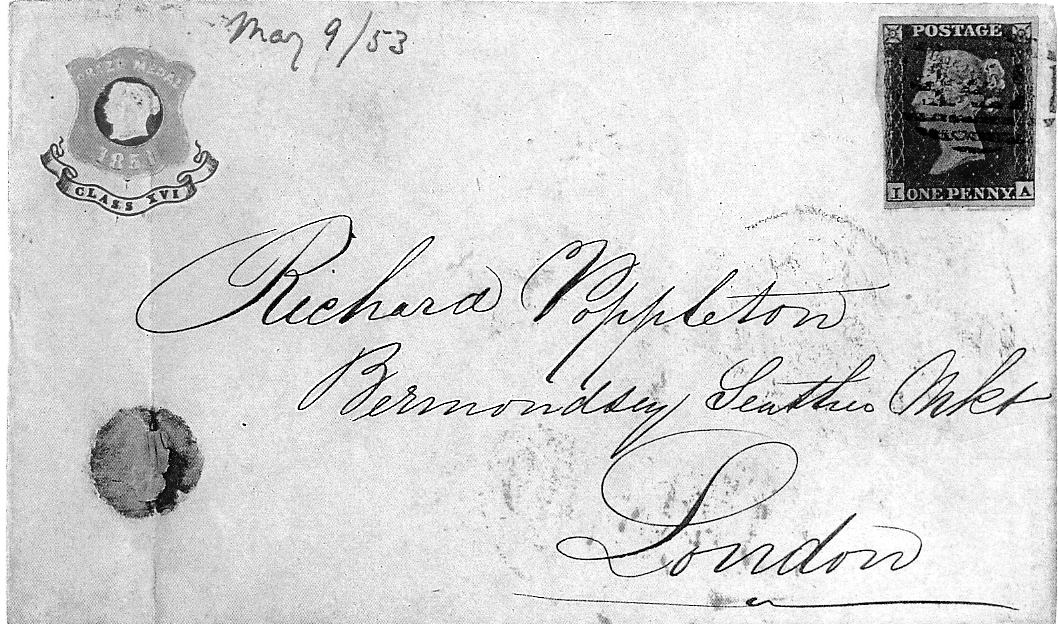 May 9/53
PRIZE MEDAL
1851
CLASS XVI
POSTAGE
I ONE PENNY A
Richard Poppleton
Bermondsey Leather Mkt
London